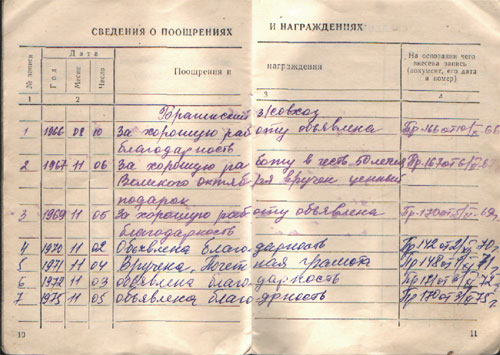 СВЕДЕНИЯ О ПООЩРЕНИЯХ И НАГРАЖДЕНИЯХ
№ записи Дата Поощрения и награждения На основании чего внесена запись (документ, его дата и номер)
Год Месяц Число
1 2 3 4
з/совхоз
1 1966 08 10 За хорошую работу объявлена Пр 166 от 10/
благодарность
2 1967 11 06 За хорошую работу в честь 50 летия Пр 167 от 6/
Великого октября вручен ценный
подарок
3 1969 11 05 За хорошую работу объявлена Пр 170 от 5/
благодарность
4 1970 11 02 Объявлена благодарность Пр 142 от 2/
5 1971 11 04 Почетная грамота Пр 148 от
6 1972 11 03 объявлена благодарность Пр 121 от
7 1975 11 05 объявлена благодарность Пр 170 от 3/
10 11